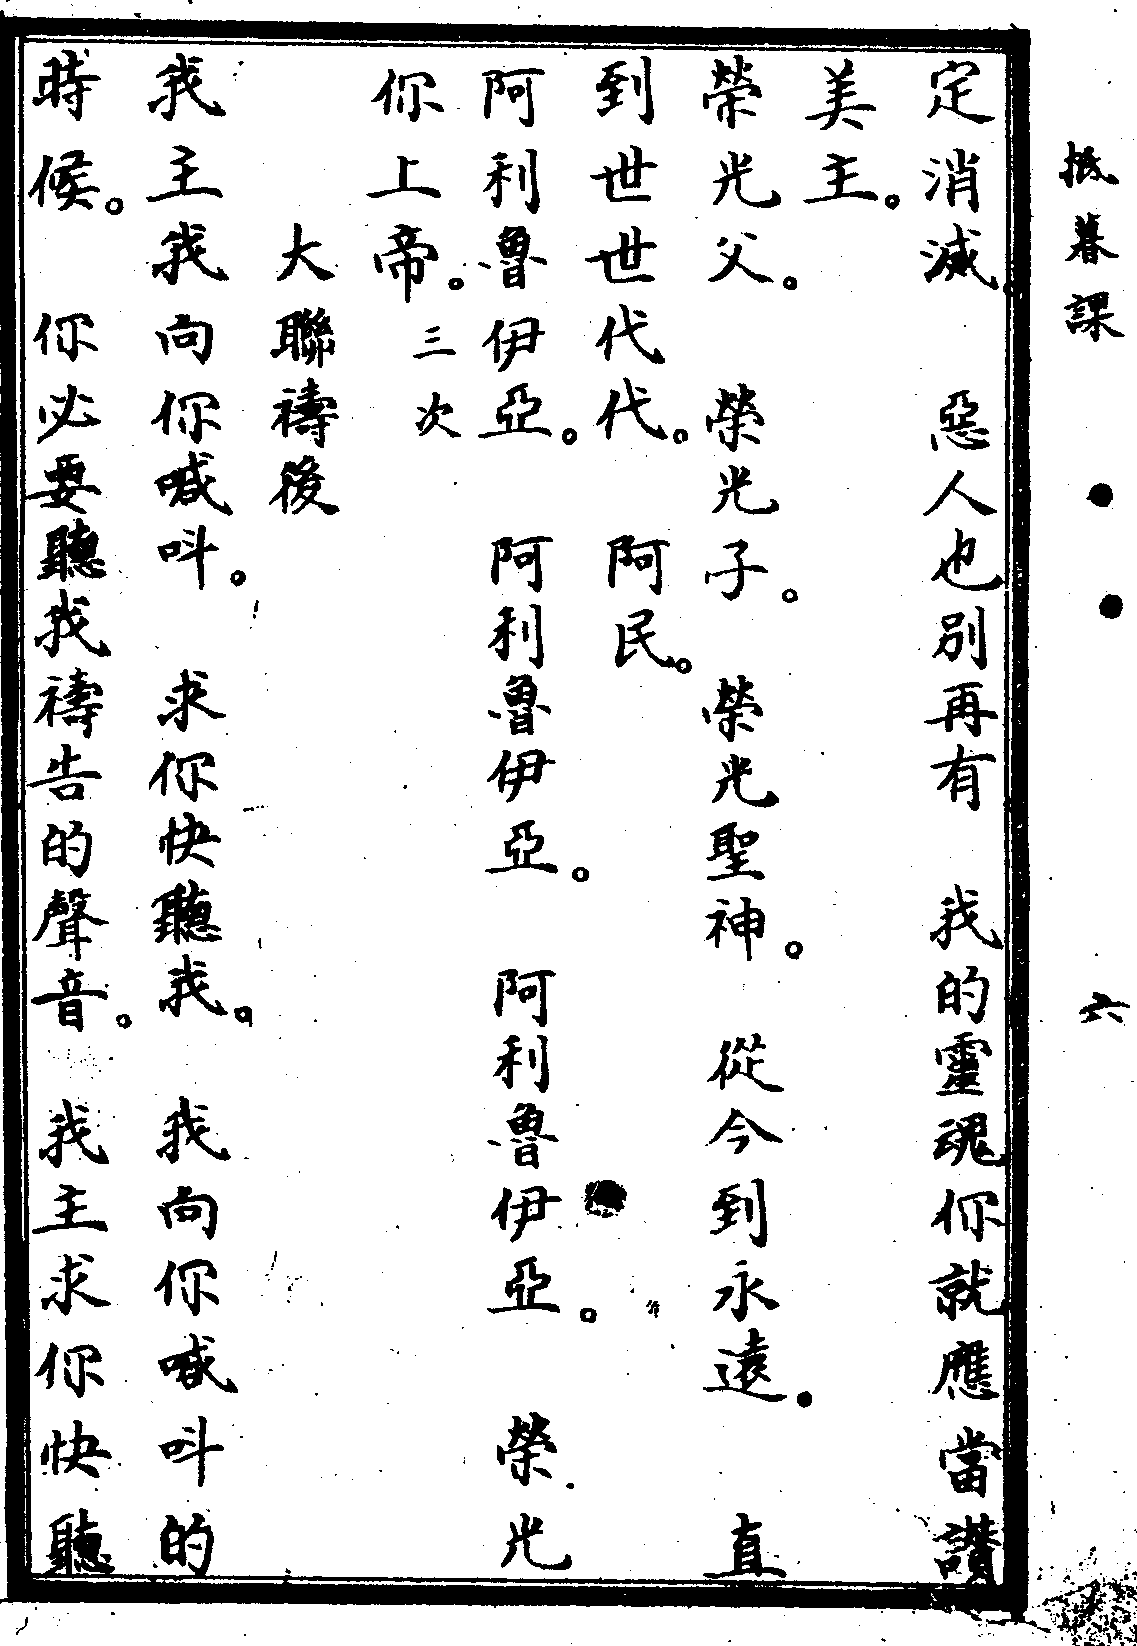 抵暮課 六
定消滅。 惡人也別再有 我的靈魂你就應當讚
美主。
榮光父。 榮光子。 榮光聖神。 從今到永遠。 直
到世世代代。 阿民。
阿利魯伊亞。 阿利魯伊亞。 阿利魯伊亞。 榮光
你上帝。三次
大聯禱後
我主我向你喊呌。 求你快聽我。 我向你喊呌的
時候。 你必要聽我禱告的聲音。 我主求你快聽